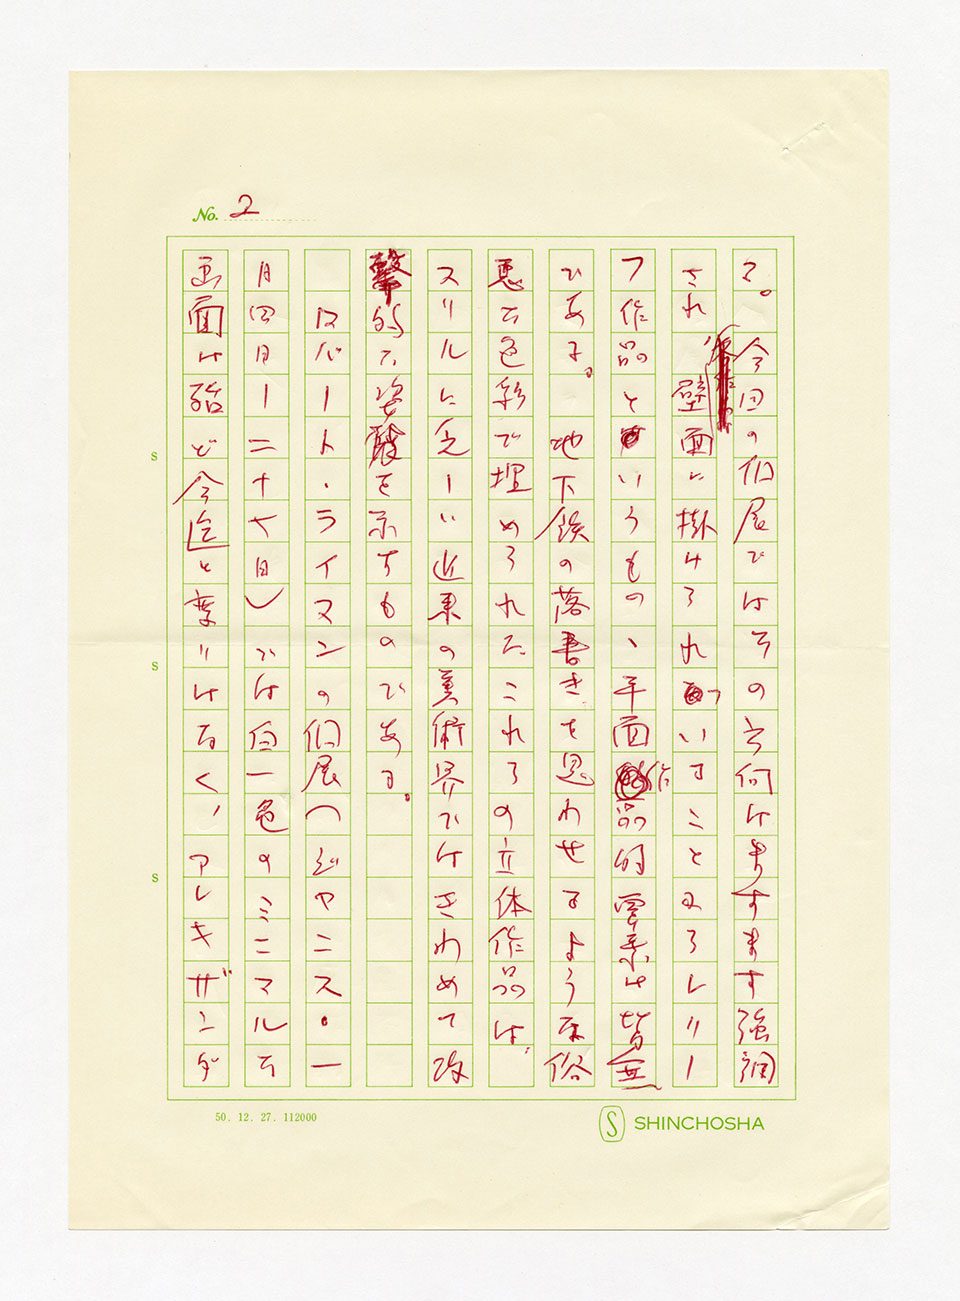 No. 2
る。今回の個展ではその方向はますます強調
され 壁面に掛けられていることからレリー
フ作品というものゝ平面作品的要素は皆無
である。地下鉄の落書きを思わせるような俗
悪な色彩で埋められたこれらの立体作品は、
スリルに乏しい近来の美術界ではきわめて攻
撃的な姿を示すものである。
ロバート・ライマンの個展（ジャニス・一
月四日ー二十六日）では白一色のミニマルな
画面は殆ど今迄と変りはなく、アレキザンダ
S
S
S
50. 12. 27. 112000
S SHINCHOSHA